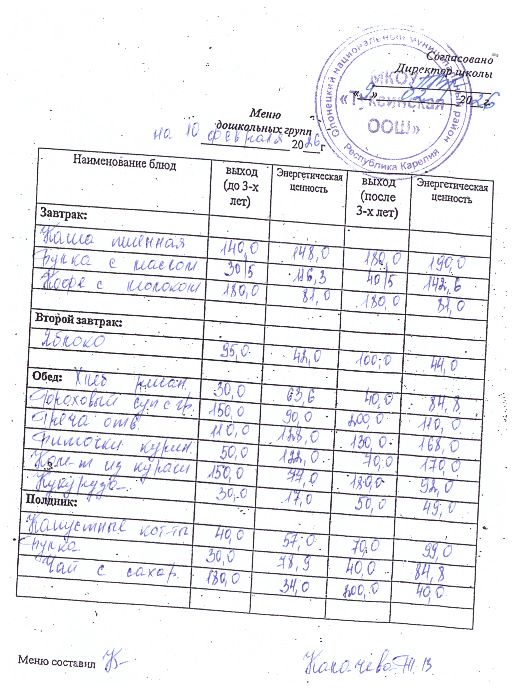 Согласовано
Директор школы
«9» 02 2026 г.
Олонецкий национальный муниципальный район
МКОУ
«Туксинская
ООШ»
Республика Карелия
Меню
дошкольных групп
на 10 февраля 2026 г.
Наименование блюд | выход (до 3-х лет) | Энергетическая ценность | выход (после 3-х лет) | Энергетическая ценность
Завтрак:
Каша пшенная 140,0 148,0 180,0 190,0
Булка с маслом 30/5 116,3 40/5 142,6
Кофе с молоком 180,0 81,0 180,0 81,0
Второй завтрак:
Яблоко 95,0 42,0 100,0 44,0
Обед: Хлеб ржан. 30,0 63,6 40,0 84,8
Гороховый суп с гр. 150,0 90,0 200,0 110,0
Греча отв. 110,0 128,0 130,0 168,0
Биточки курин. 50,0 122,0 70,0 170,0
Комп-т из кураги 150,0 77,0 180,0 92,0
Кукуруза 30,0 17,0 50,0 49,0
Полдник:
Капустные кот-ты 40,0 57,0 70,0 99,0
Булка 30,0 78,9 40,0 84,8
Чай с сахар. 180,0 34,0 200,0 40,0
Меню составил